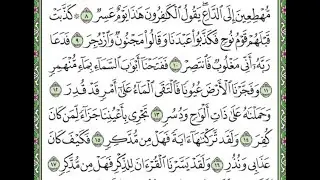 مُّهْطِعِينَ إِلَى ٱلدَّاعِ ۖ يَقُولُ ٱلْكَٰفِرُونَ هَٰذَا يَوْمٌ عَسِرٌ ٨ ۞ كَذَّبَتْ
قَبْلَهُمْ قَوْمُ نُوحٍ فَكَذَّبُوا۟ عَبْدَنَا وَقَالُوا۟ مَجْنُونٌ وَٱزْدُجِرَ ٩ فَدَعَا
رَبَّهُۥٓ أَنِّى مَغْلُوبٌ فَٱنتَصِرْ ١٠ فَفَتَحْنَآ أَبْوَٰبَ ٱلسَّمَآءِ بِمَآءٍ مُّنْهَمِرٍ
١١ وَفَجَّرْنَا ٱلْأَرْضَ عُيُونًا فَٱلْتَقَى ٱلْمَآءُ عَلَىٰٓ أَمْرٍ قَدْ قُدِرَ ١٢
وَحَمَلْنَٰهُ عَلَىٰ ذَاتِ أَلْوَٰحٍ وَدُسُرٍ ١٣ تَجْرِى بِأَعْيُنِنَا جَزَآءً لِّمَن كَانَ
كُفِرَ ١٤ وَلَقَد تَّرَكْنَٰهَآ ءَايَةً فَهَلْ مِن مُّدَّكِرٍ ١٥ فَكَيْفَ كَانَ
عَذَابِى وَنُذُرِ ١٦ وَلَقَدْ يَسَّرْنَا ٱلْقُرْءَانَ لِلذِّكْرِ فَهَلْ مِن مُّدَّكِرٍ ١٧